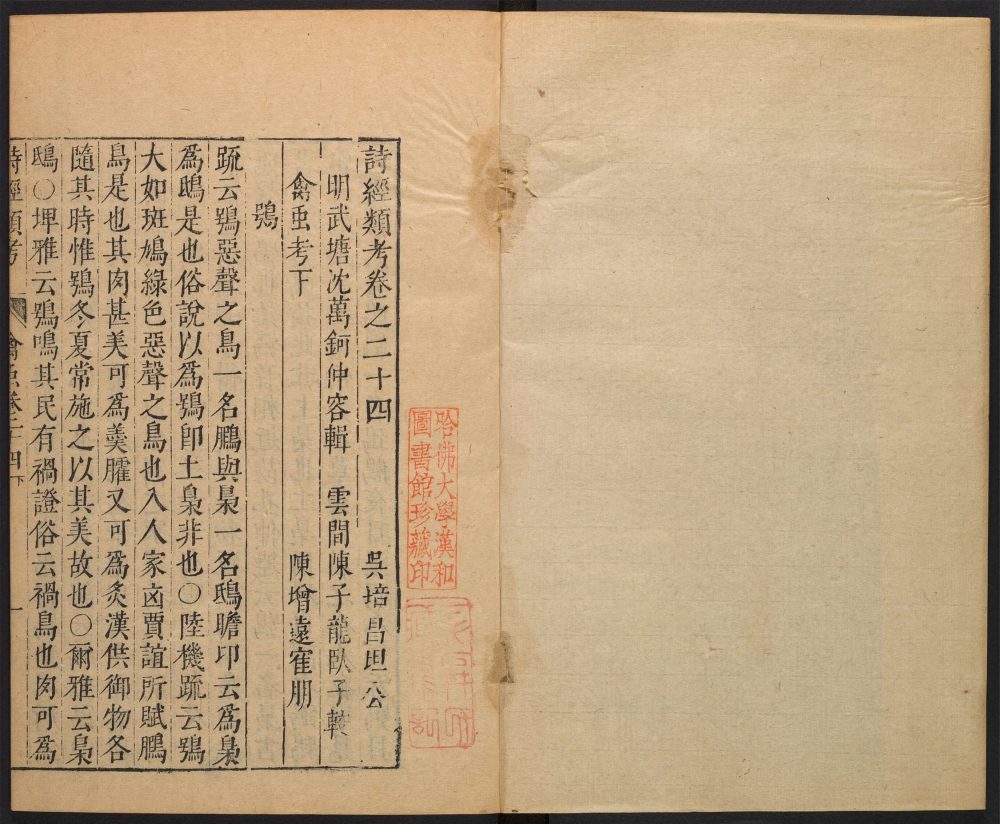 詩經類考卷之二十四
吳培昌坦公
明武塘沈萬鈳仲容輯 雲間陳子龍臥子較
禽虫考下 陳增遠寉朋
鴞
䟽云鴞惡聲之鳥一名鵩與梟一名鴟瞻卬云爲梟
爲鴟是也俗說以爲鴞卽土梟非也○陸機䟽云鴞
大如斑鳩綠色惡聲之鳥也入人家凶賈誼所賦鵩
鳥是也其肉甚美可爲羹臛又可爲炙漢供御物各
隨其時惟鴞冬夏常施之以其美故也○爾雅云梟
鴟○埤雅云鴞鳴其民有禍證俗云禍鳥也肉可爲
詩經類考 禽虫卷二十四下 一
哈佛大學漢和
圖書館珍藏印